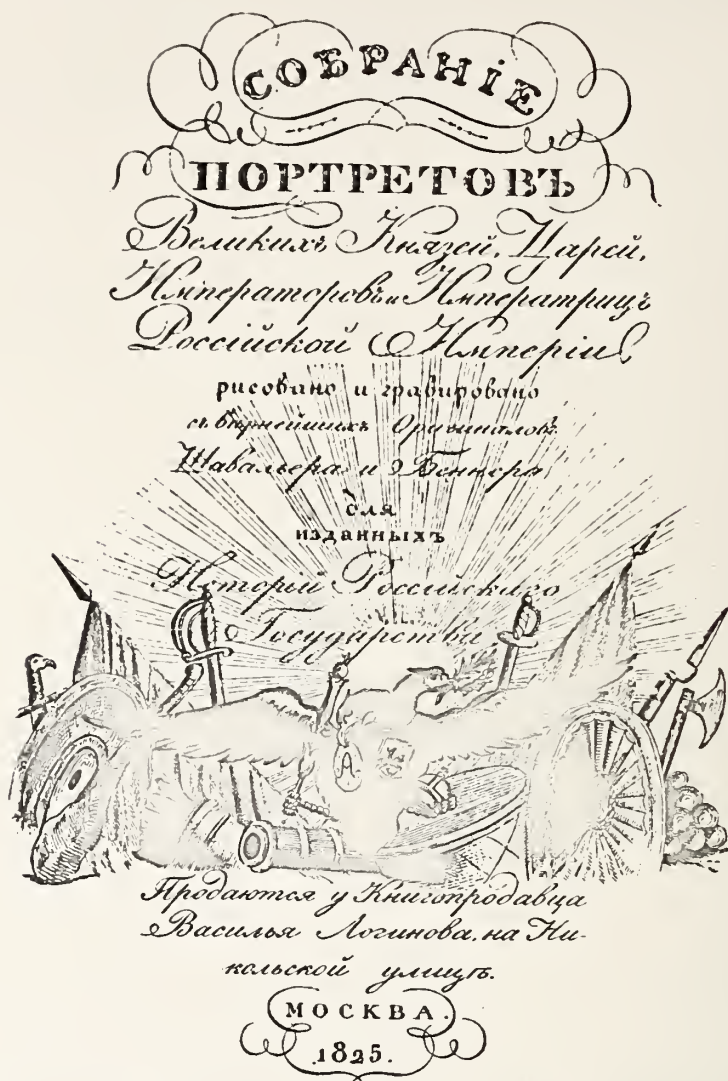 СОБРАНІЕ
ПОРТРЕТОВЪ
Великихъ Князей, Царей,
Императоровъ и Императрицъ
Россійской Имперіи
рисовано и гравировано
съ вѣрнейшихъ Оригиналовъ
Шавальера и Беннера
для
изданныхъ
Исторій Россійскаго
Государства
А
Продаются у Книгопродавца
Василья Логинова, на Ни-
кольской улицѣ.
МОСКВА.
1825.